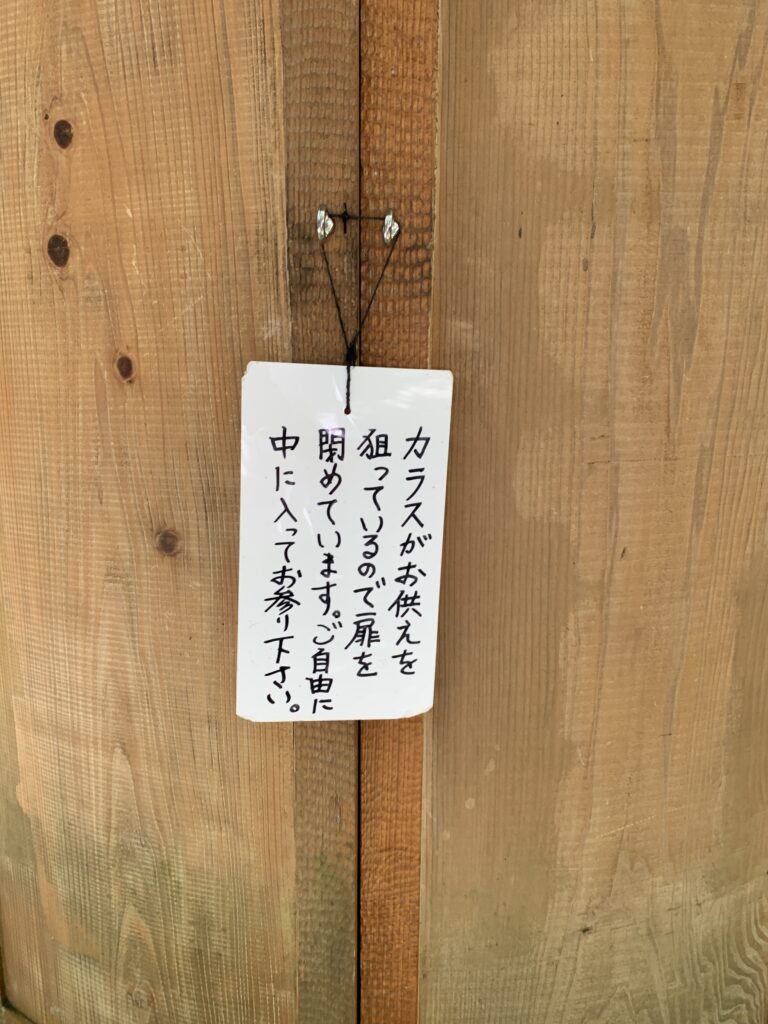 カラスがお供えを
狙っているので扉を
閉めています。ご自由に
中に入ってお参り下さい。